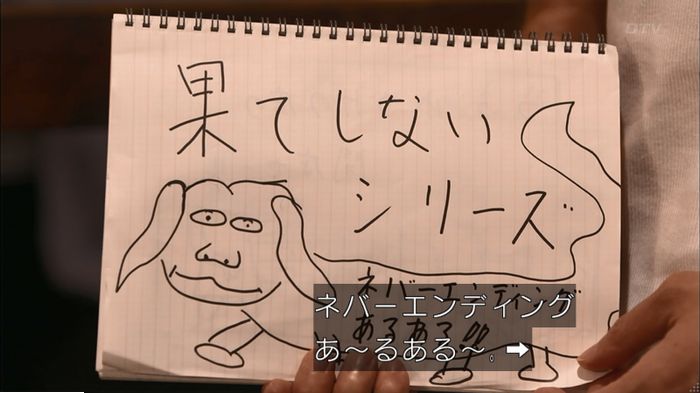 DTV
果てしない
シリーズ
ネバーエンディング
あるある!!
ネバーエンディング
あ〜るある〜。➡